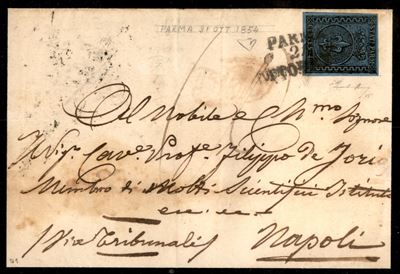 PARMA 31 OTT 1854
PARMA
Al Nobile e Ch.mo Signore
Il Sig.r Cav.e Prof.e Filippo de Jorio
Membro di Molti Scientifici Istituti
Via Tribunali
Napoli